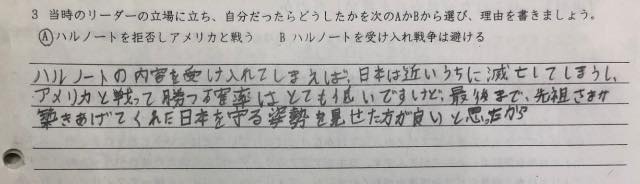 3 当時のリーダーの立場に立ち、自分だったらどうしたかを次のAかBから選び、理由を書きましょう。
Ⓐハルノートを拒否しアメリカと戦う B ハルノートを受け入れ戦争は避ける
ハルノートの内容を受け入れてしまえば、日本は近いうちに滅亡してしまうし、
アメリカと戦って勝つる確率はとても低いですけど、最後まで、先祖さまが
築きあげてくれた日本を守る姿勢を見せた方が良いと思ったから